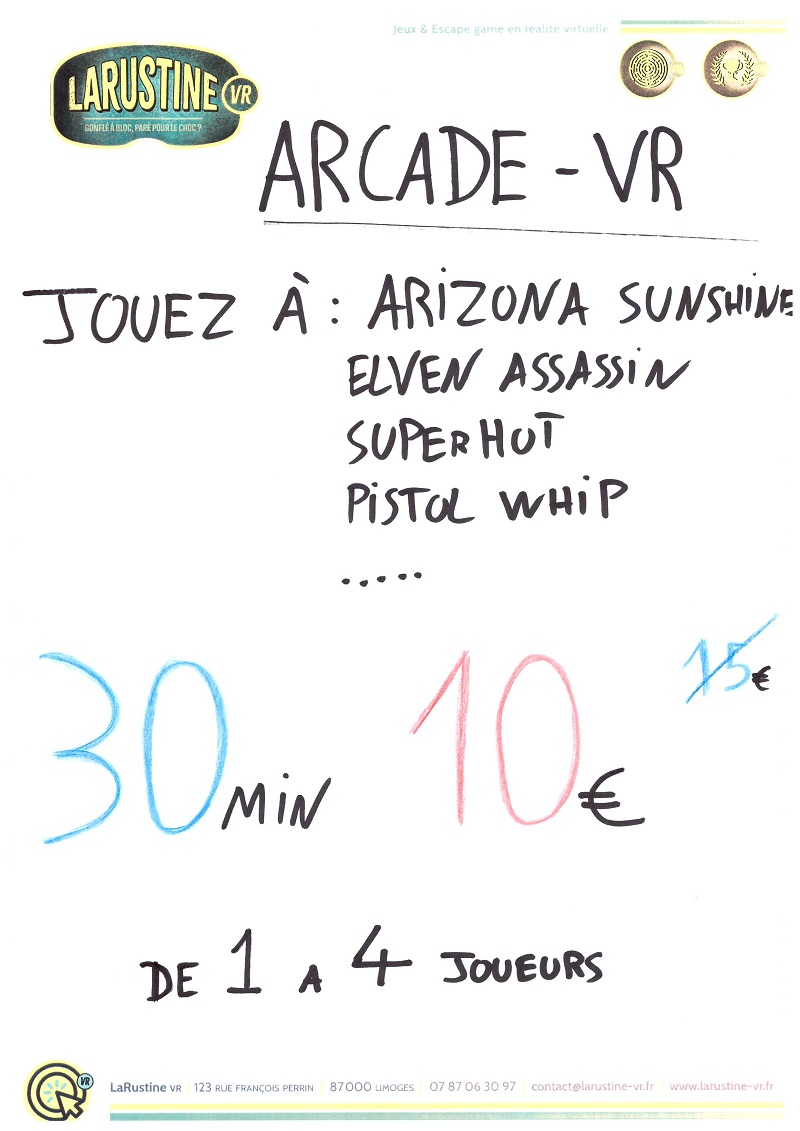 Jeux & Escape game en réalité virtuelle
LARUSTINE VR
GONFLÉ À BLOC, PARÉ POUR LE CHOC ?
ARCADE - VR
JOUEZ À : ARIZONA SUNSHINE
ELVEN ASSASSIN
SUPERHOT
PISTOL WHIP
.....
30 MIN 10 € 15 €
DE 1 A 4 JOUEURS
VR
LaRustine VR | 123 RUE FRANÇOIS PERRIN | 87000 LIMOGES | 07 87 06 30 97 | contact@larustine-vr.fr | www.larustine-vr.fr